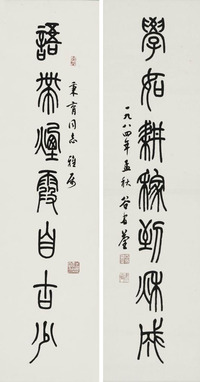 學如耕稼到秋成
一九八四年孟秋谷有荃
秉育同志雅屬
語帶煙霞自古少